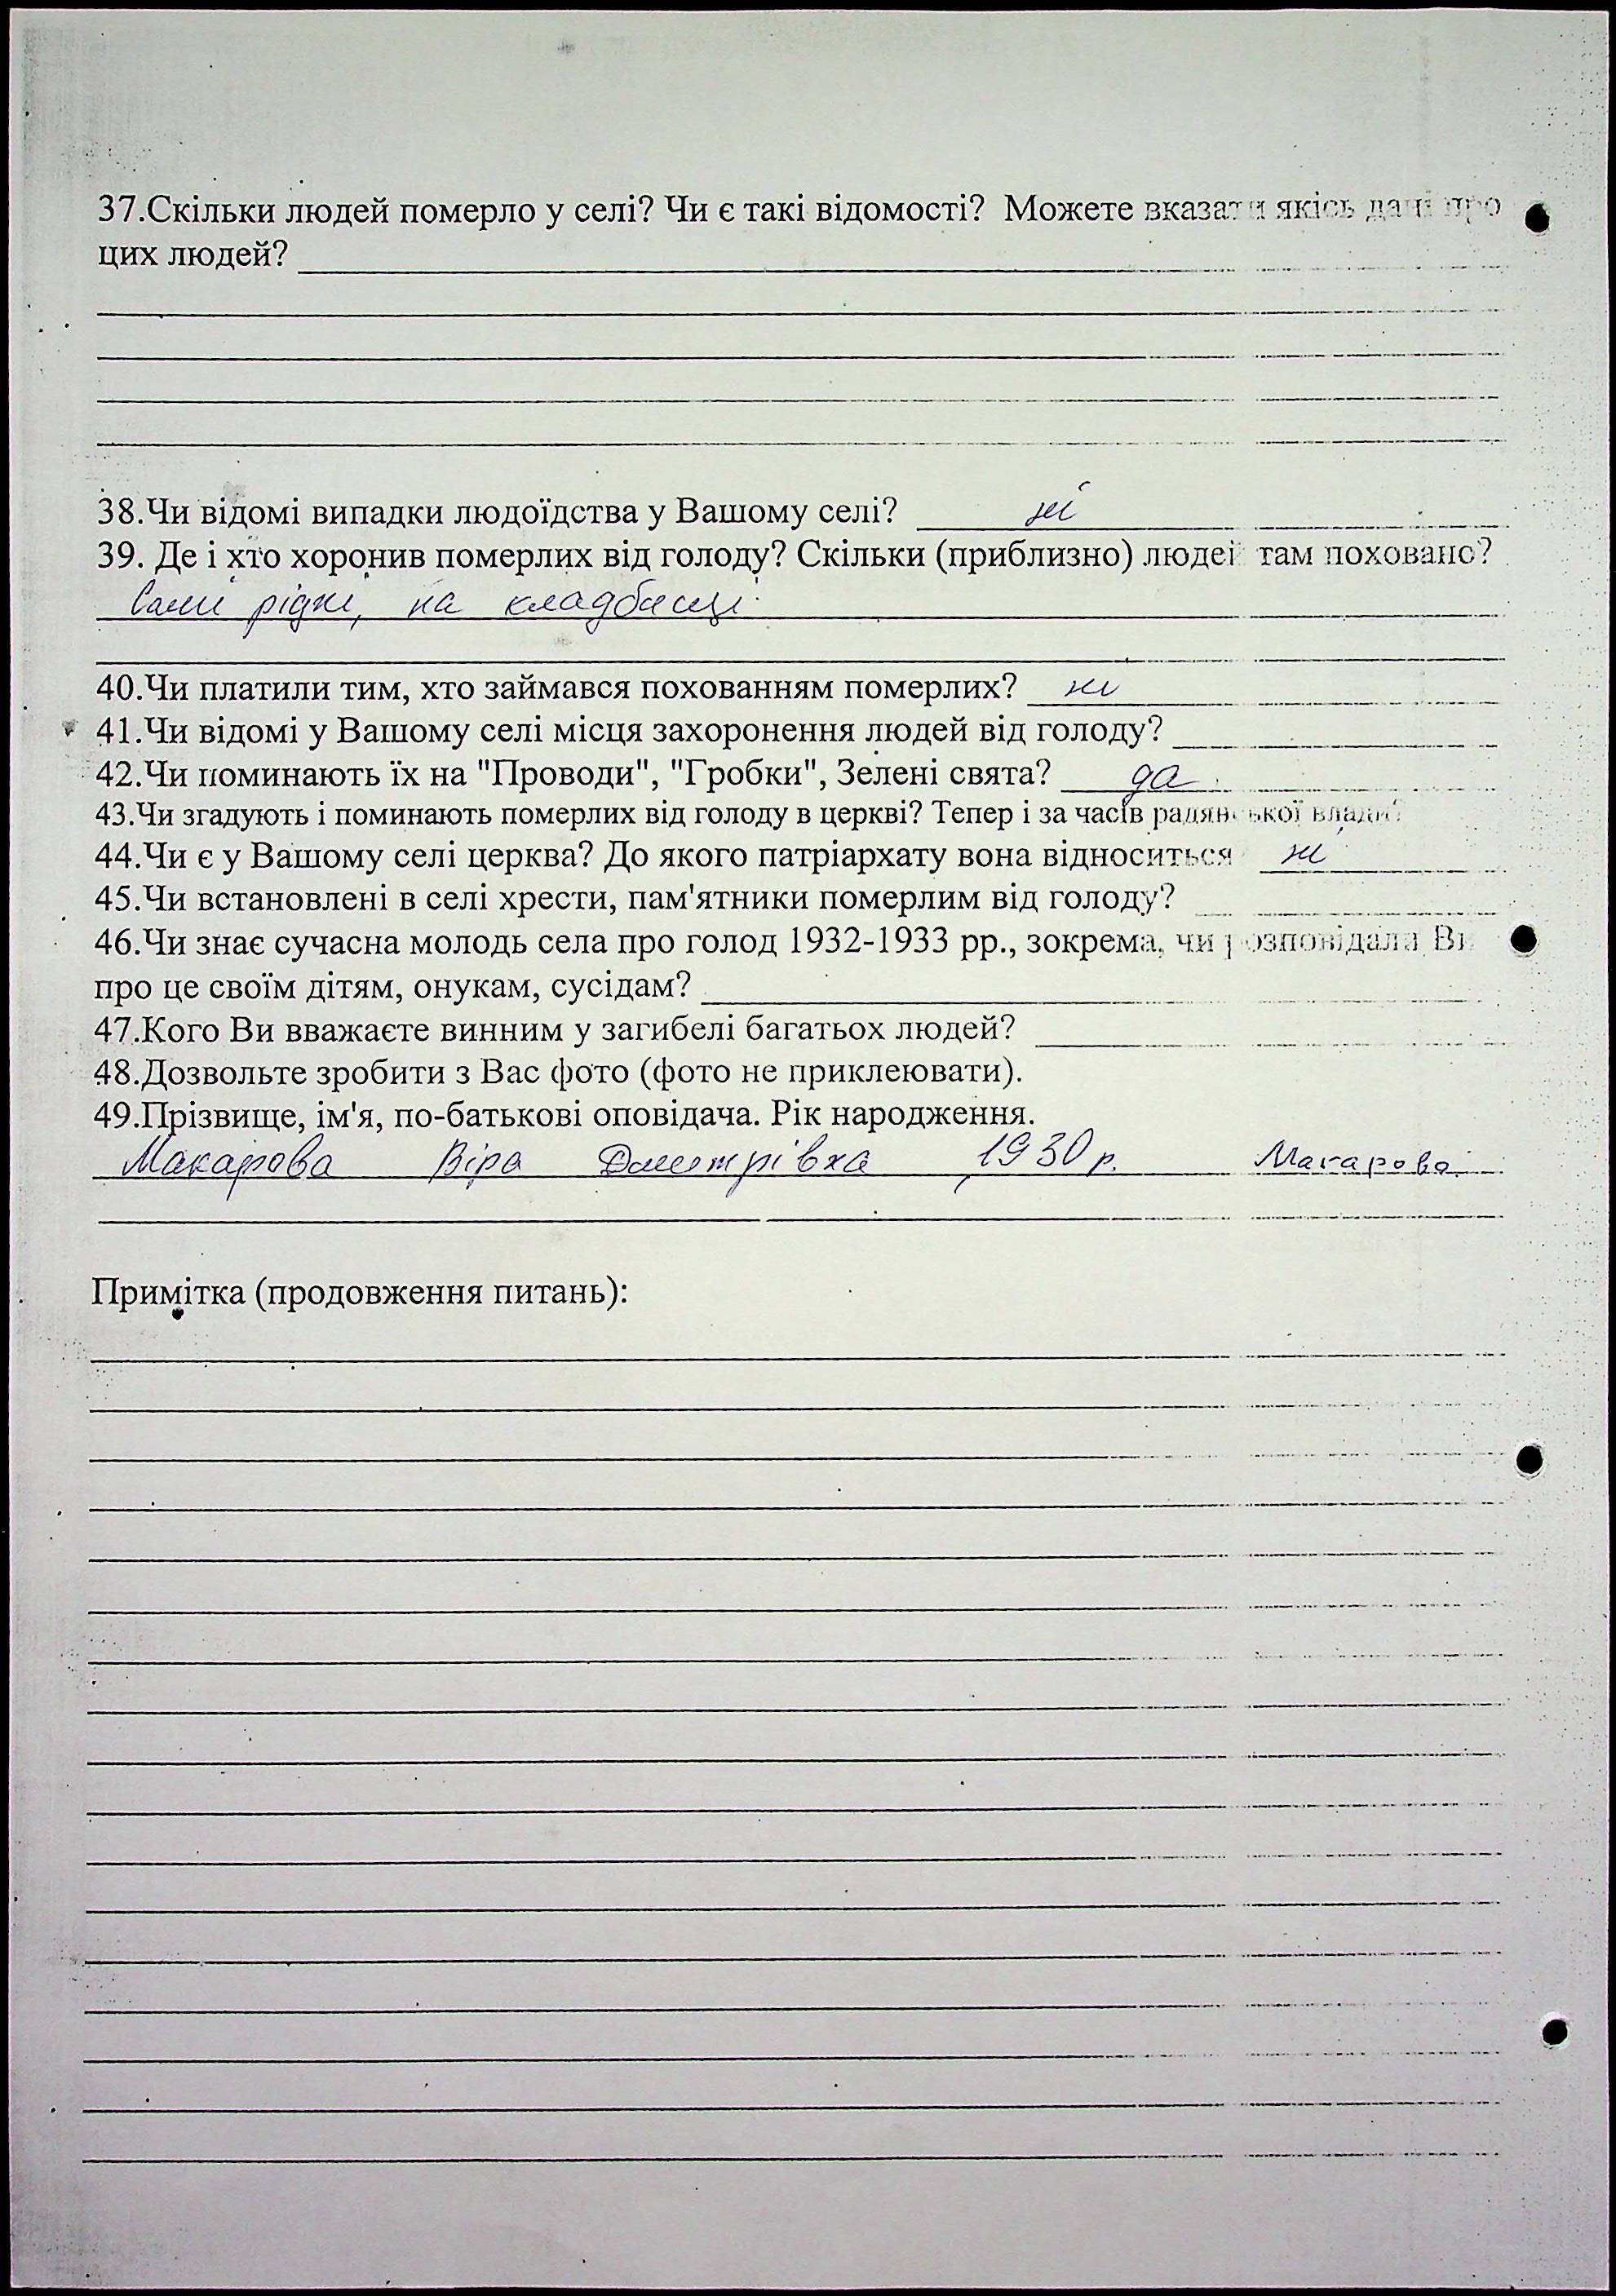 37.Скільки людей померло у селі? Чи є такі відомості? Можете вказати якісь дані про
цих людей?
38.Чи відомі випадки людоїдства у Вашому селі? ні
39. Де і хто хоронив померлих від голоду? Скільки (приблизно) людей там поховано?
Самі рідні, на кладбищі
40.Чи платили тим, хто займався похованням померлих? ні
41.Чи відомі у Вашому селі місця захоронення людей від голоду?
42.Чи поминають їх на "Проводи", "Гробки", Зелені свята? да
43.Чи згадують і поминають померлих від голоду в церкві? Тепер і за часів радянської влади?
44.Чи є у Вашому селі церква? До якого патріархату вона відноситься ні
45.Чи встановлені в селі хрести, пам'ятники померлим від голоду?
46.Чи знає сучасна молодь села про голод 1932-1933 рр., зокрема, чи розповідали Ви
про це своїм дітям, онукам, сусідам?
47.Кого Ви вважаєте винним у загибелі багатьох людей?
48.Дозвольте зробити з Вас фото (фото не приклеювати).
49.Прізвище, ім'я, по-батькові оповідача. Рік народження.
Макарова Віра Дмитрівна, 1930 р. Макарова
Примітка (продовження питань):